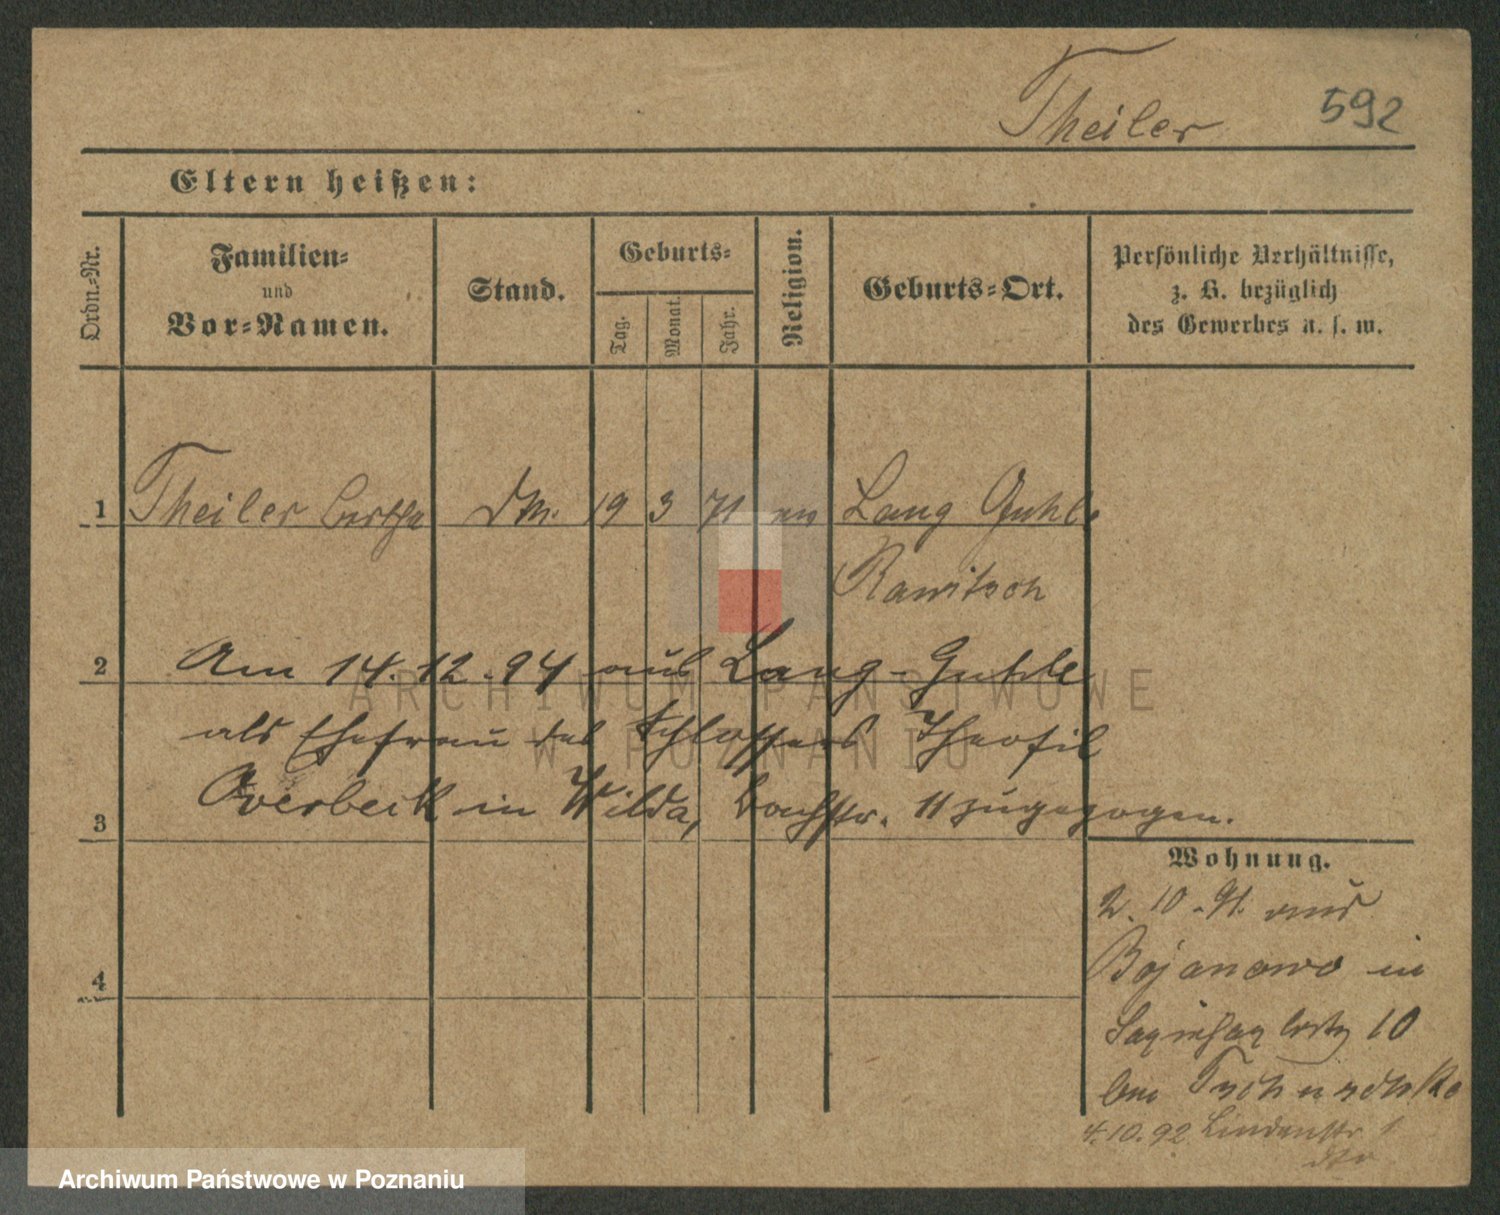 Theiler 592
Eltern heißen:
Ordn.-Nr.
Familien-
und
Vor-Namen.
Stand.
Geburts-
Tag.
Monat.
Jahr.
Religion.
Geburts-Ort.
Persönliche Verhältnisse,
z. B. bezüglich
des Gewerbes u. s. w.
1 Theiler Bertha DM. 19 3 71 ev Lang Guhle
Rawitsch
2 Am 14.12.94 aus Lang-Guhle
als Ehefrau des Schlossers Theofil
3 Overbeck in Wilda, Bachstr. 11 zugezogen.
Wohnung.
2.10.91. aus
Bojanowo in
4
Sapiehaplatz 10
bei
4.10.92 Lindenstr 1
ARCHIWUM PAŃSTWOWE
W POZNANIU
Archiwum Państwowe w Poznaniu